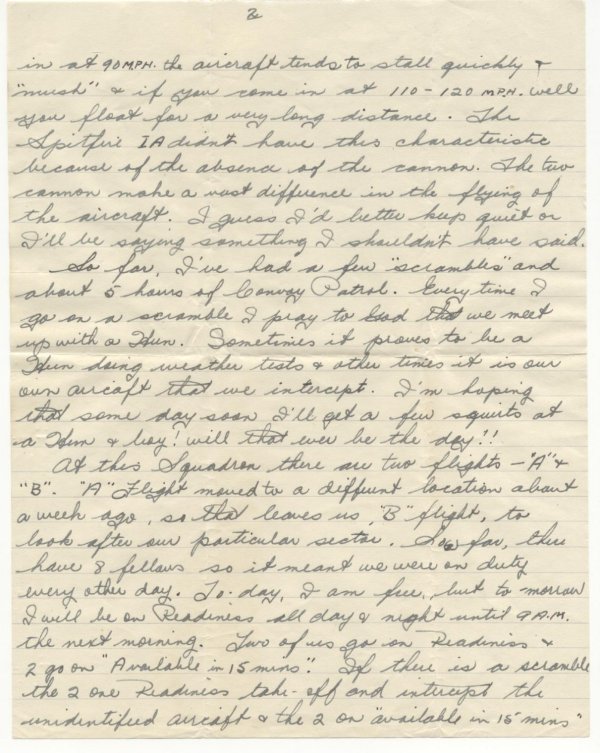 2
in at 90 M.P.H. the aircraft tends to stall quickly &
"mush" & if you come in at 110-120 M.P.H. well
you float for a very long distance. The
Spitfire IA didn't have this characteristic
because of the absence of the cannon. The two
cannon make a vast difference in the flying of
the aircraft. I guess I'd better keep quiet or
I'll be saying something I shouldn't have said.
So far, I've had a few "scrambles" and
about 5 hours of Convoy Patrol. Every time I
go on a scramble I pray to God that we meet
up with a Hun. Sometimes it proves to be a
Hun doing weather tests & other times it is our
own aircaft that we intercept. I'm hoping
that some day soon I'll get a few squirts at
a Hun & boy! will that ever be the day!!
At this Squadron there are two flights - "A" &
"B". "A" Flight moved to a different location about
a week ago, so that leaves us, "B" flight, to
look after our particular sector. So far, there
have 8 fellows so it meant we were on duty
every other day. To-day, I am free, but to-morrow
I will be on Readiness all day & night until 9 A.M.
the next morning. Two of us go on Readiness &
2 go on "Available in 15 mins". If there is a scramble
the 2 one Readiness take-off and intercept the
unidentified aircaft & the 2 on "available in 15 mins"